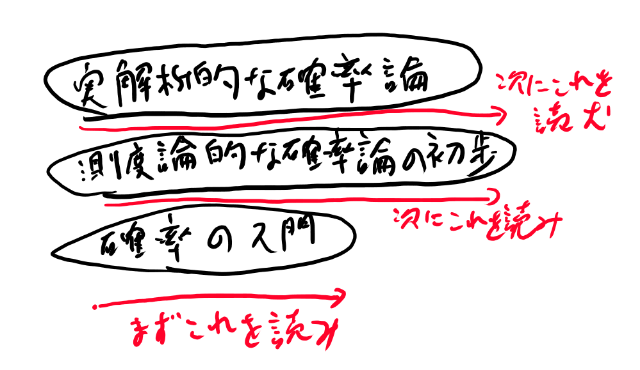 実解析的な確率論
次にこれを
読む
測度論的な確率論の初歩
次にこれを読み
確率の入門
まずこれを読み